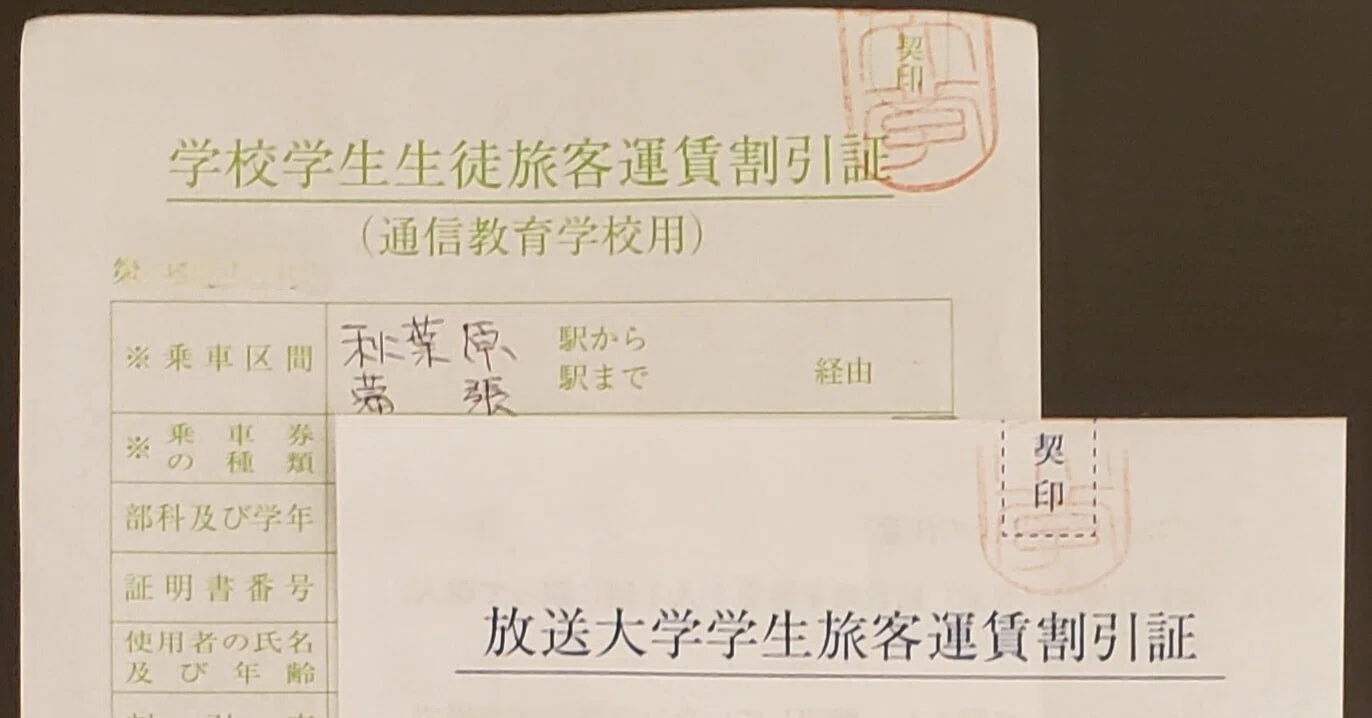 契印
学校学生生徒旅客運賃割引証
（通信教育学校用）
※乗車区間
秋葉原 駅から
幕張 駅まで 経由
※乗車券の種類
部科及び学年
証明書番号
使用者の氏名及び年齢
契印
放送大学学生旅客運賃割引証